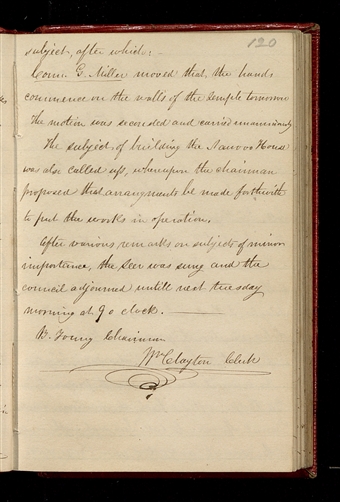 120
subject, after which:
Coun. G. Miller moved that the hands
commence on the walls of the temple tomorrow
The motion was seconded and carried unanimously
The subject of building the Nauvoo House
was also called up, whereupon the chairman
proposed that arrangements be made forthwith
to put the works in operation.
After various remarks on subjects of minor
importance, the Seer was sung and the
council adjourned untill next tuesday
morning at 9 o clock.
B. Young Chairman
Wm Clayton Clerk